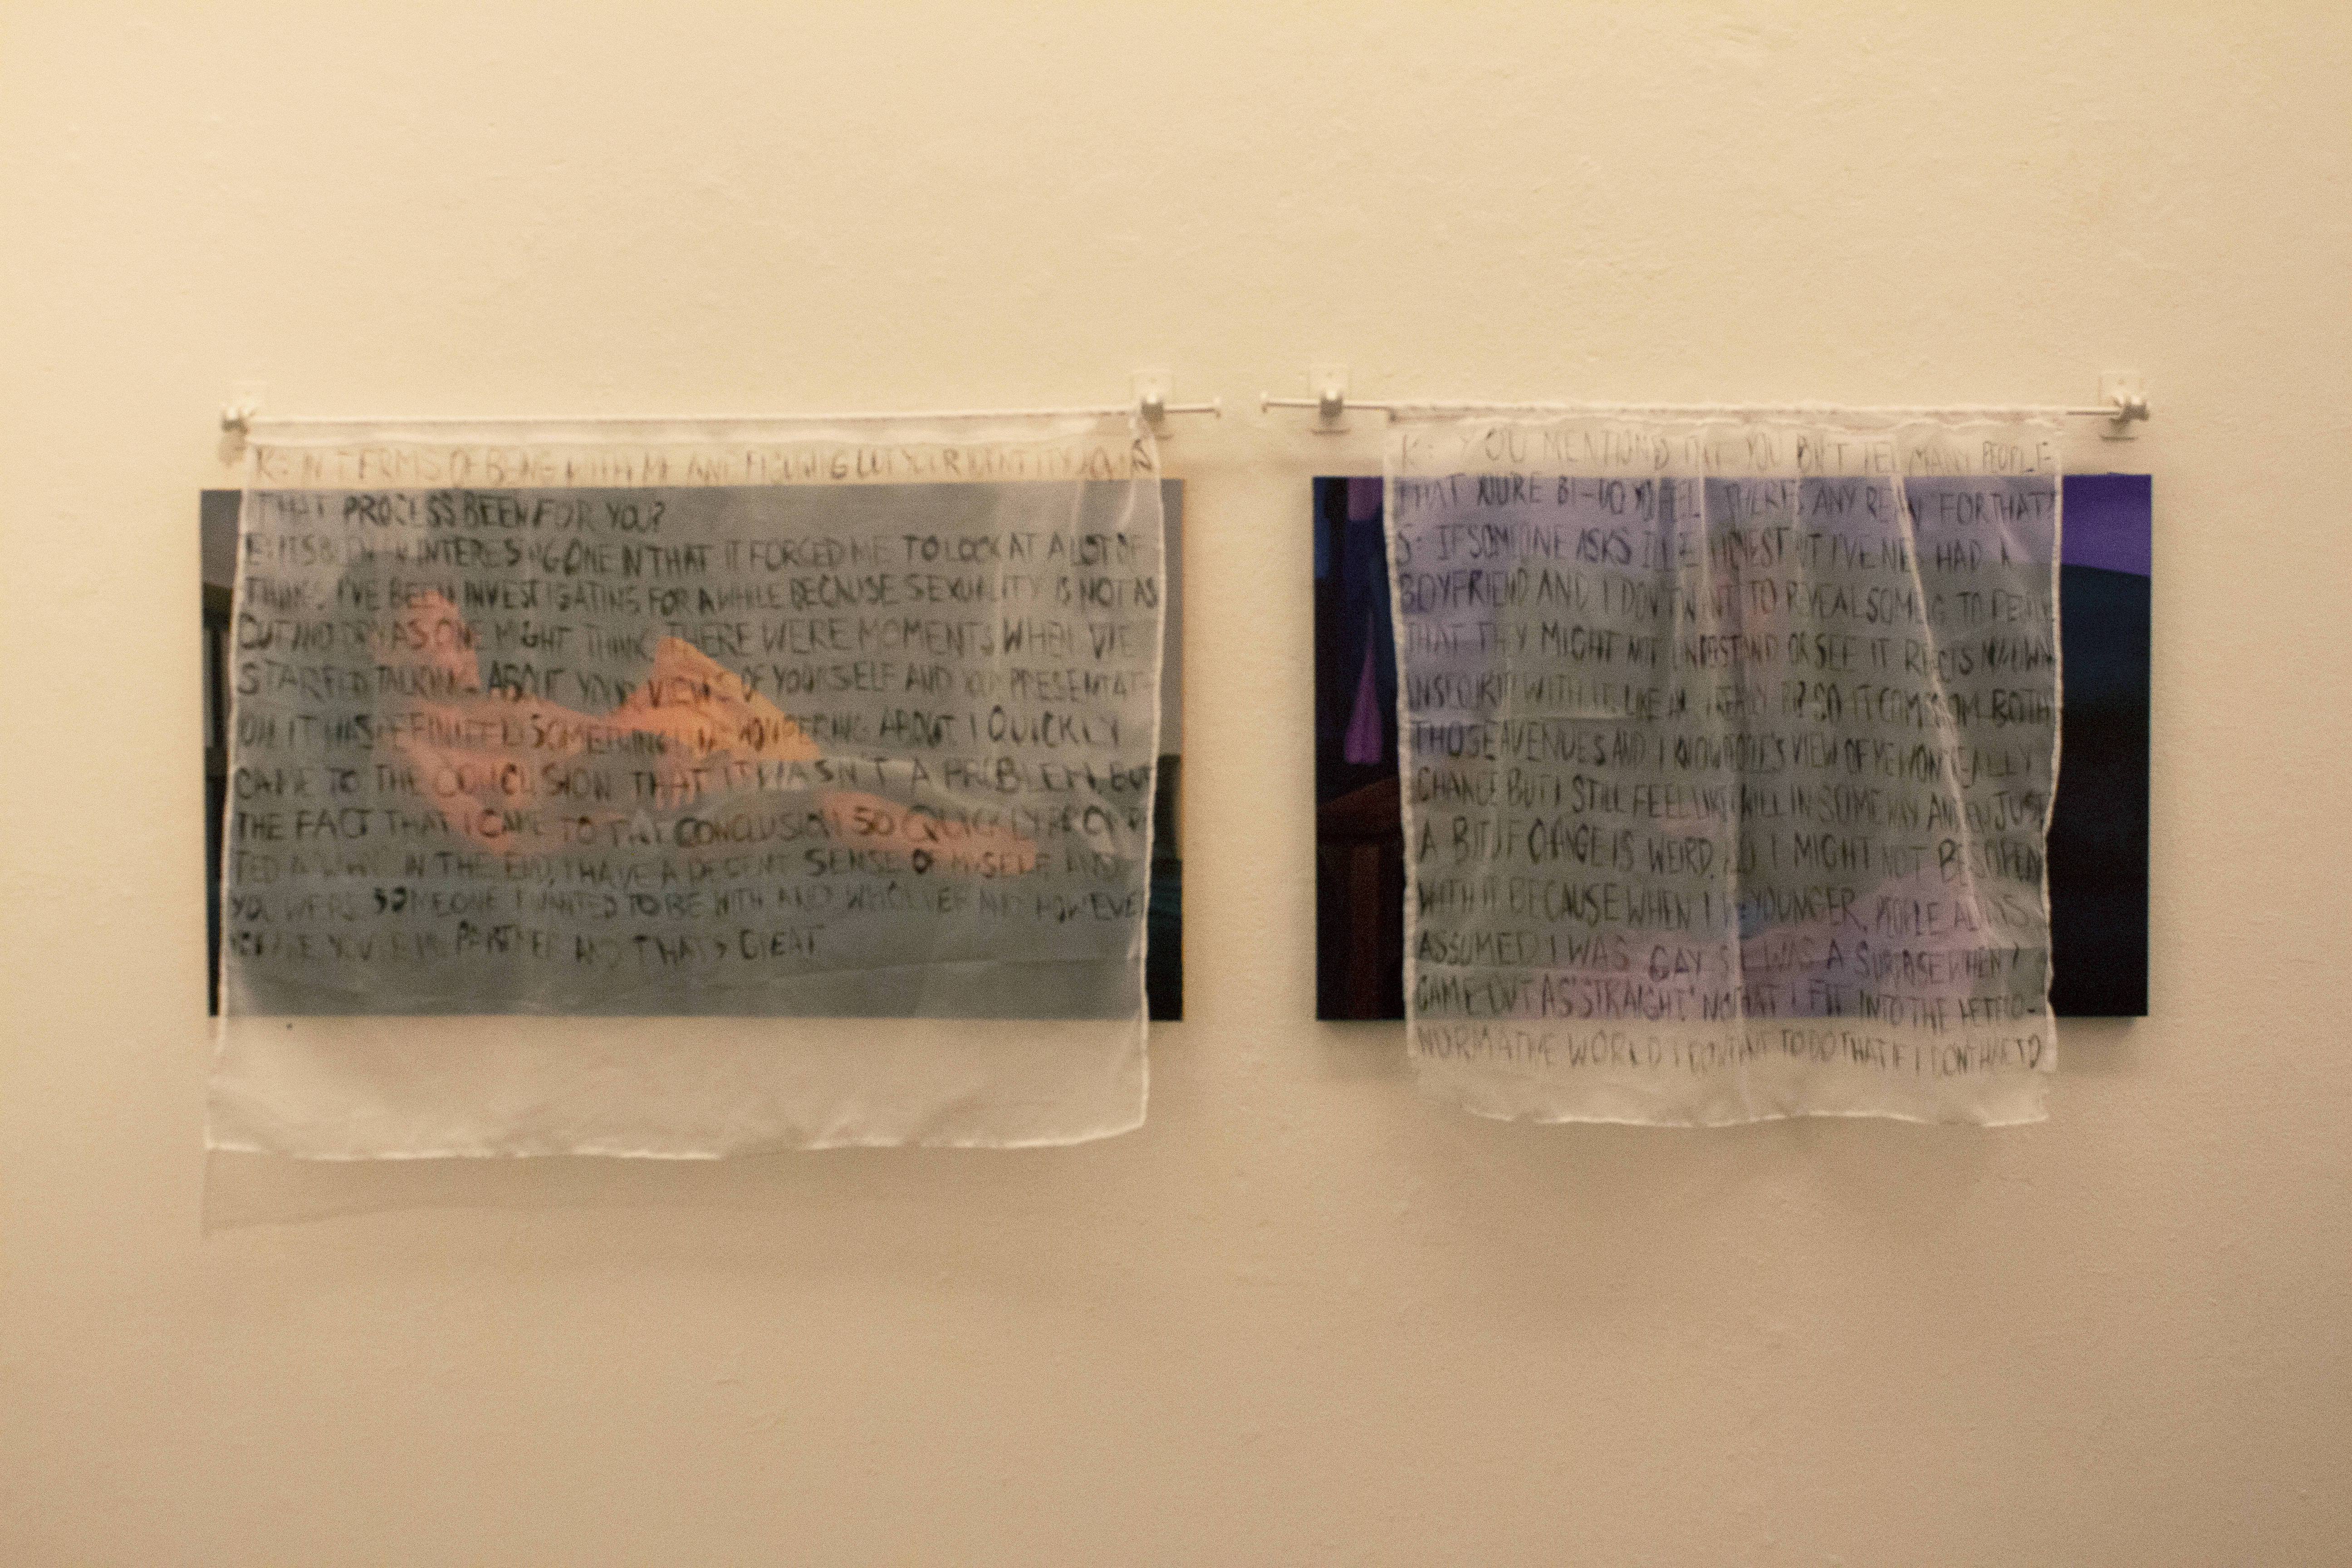 K: IN TERMS OF BEING WITH ME AND FIGURING OUT YOUR IDENTITY, HOW'S
THAT PROCESS BEEN FOR YOU?
IT'S BEEN AN INTERESTING ONE IN THAT IT FORCED ME TO LOOK AT A LOT OF
THINGS I'VE BEEN INVESTIGATING FOR A WHILE BECAUSE SEXUALITY IS NOT AS
CUT AND DRY AS ONE MIGHT THINK. THERE WERE MOMENTS WHEN WE
STARTED TALKING ABOUT YOUR VIEWS OF YOURSELF AND YOUR PRESENTAT-
ION IT WAS DEFINITELY SOMETHING WONDERING ABOUT I QUICKLY
CAME TO THE CONCLUSION THAT IT WASN'T A PROBLEM, BUT
THE FACT THAT I CAME TO THAT CONCLUSION SO QUICKLY
IN THE END, I HAVE A DECENT SENSE OF MYSELF AND
YOU WERE SOMEONE I WANTED TO BE WITH AND WHOEVER AND HOWEVER
YOU ARE YOU'RE MY PARTNER AND THAT'S GREAT
K: YOU MENTIONED THAT YOU DON'T TELL MANY PEOPLE
THAT YOU'RE BI-DO YOU FEEL THERE'S ANY REASON FOR THAT?
S: IF SOMEONE ASKS I'LL BE HONEST BUT I'VE NEVER HAD A
BOYFRIEND AND I DON'T WANT TO REVEAL SOMETHING TO PEOPLE
THAT THEY MIGHT NOT UNDERSTAND OR SEE IT REFLECTS MY OWN
INSECURITY WITH IT. LIKE AM I REALLY BI? SO IT COMES FROM BOTH
THOSE AVENUES AND I KNOW PEOPLE'S VIEW OF ME WON'T REALLY
CHANGE BUT I STILL FEEL LIKE IT WILL IN SOME WAY AND EVEN JUST
A BIT OF CHANGE IS WEIRD. SO I MIGHT NOT BE SO OPEN
WITH IT BECAUSE WHEN I WAS YOUNGER, PEOPLE ALWAYS
ASSUMED I WAS GAY SO IT WAS A SURPRISE WHEN I
CAME OUT AS "STRAIGHT" NOW THAT I FIT INTO THE HETERO-
NORMATIVE WORLD I DON'T WANT TO DO THAT IF I DON'T HAVE TO